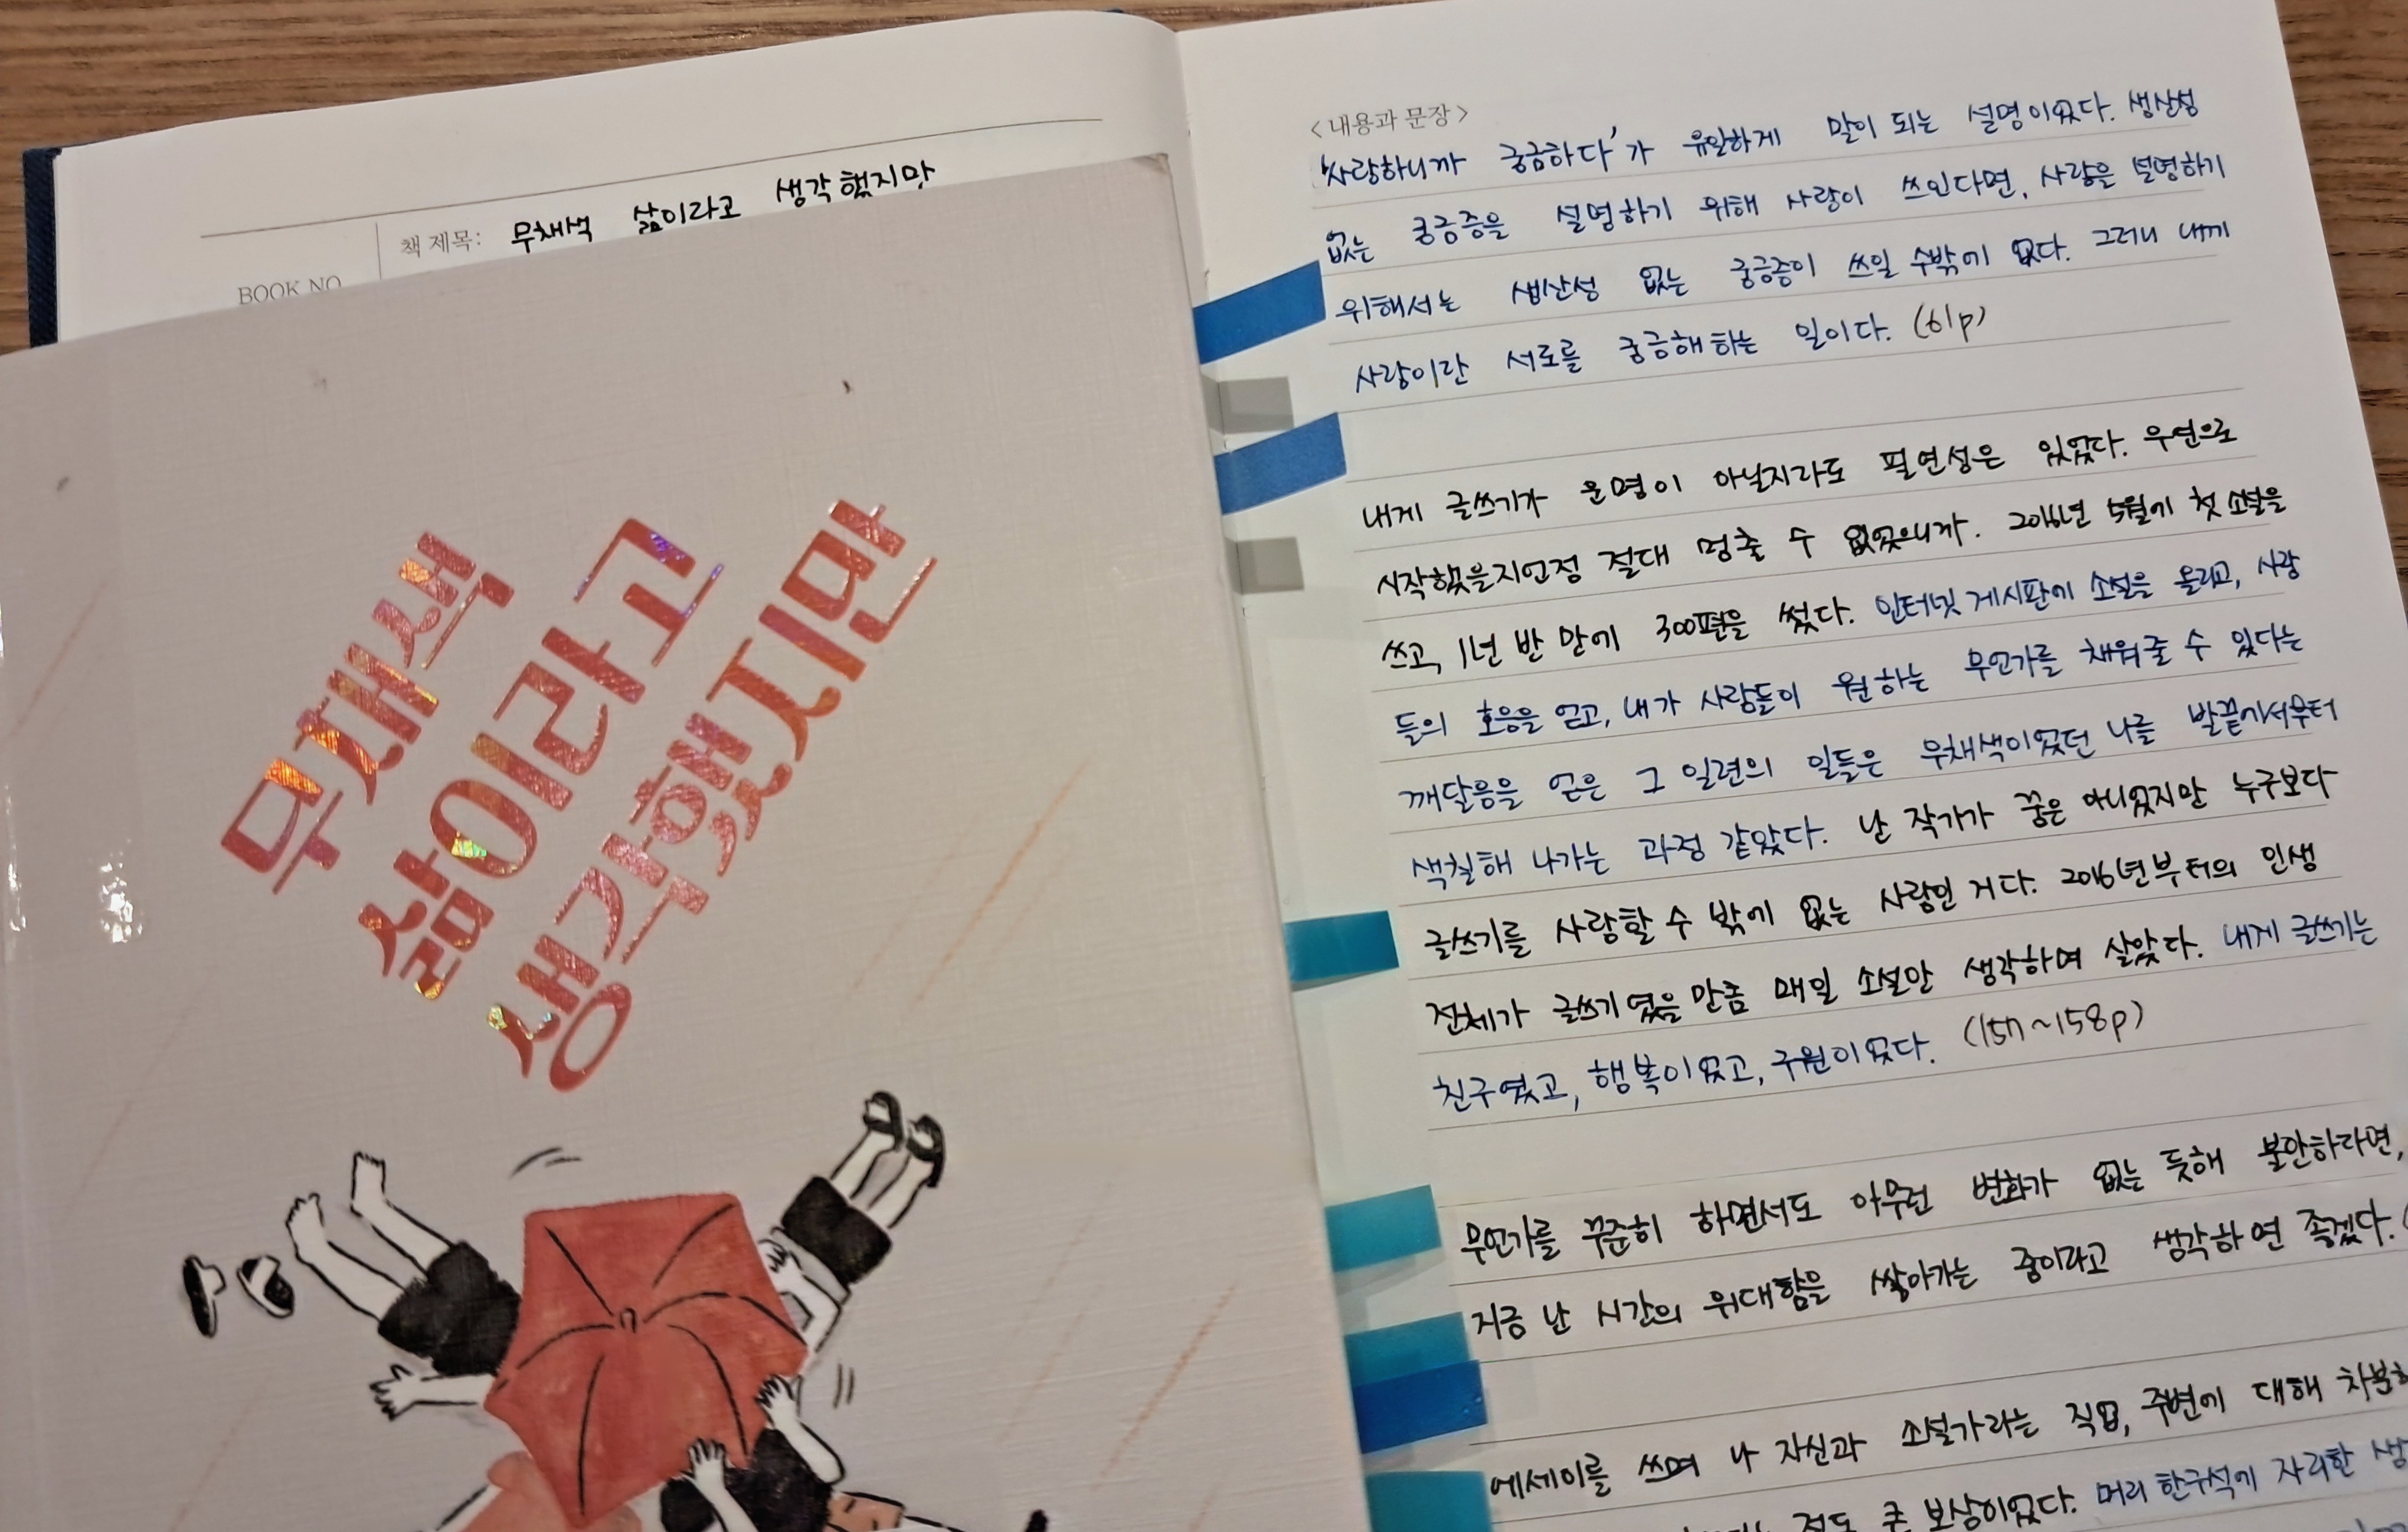 책 제목: 무채색 삶이라고 생각했지만
BOOK NO
무채색
삶이라고
생각했지만
<내용과 문장>
'사랑하니까 궁금하다'가 유일하게 말이 되는 설명이었다. 생산성
없는 궁금증을 설명하기 위해 사랑이 쓰인다면, 사랑을 설명하기
위해서는 생산성 없는 궁금증이 쓰일 수밖에 없다. 그러니 내게
사랑이란 서로를 궁금해하는 일이다. (61p)
내게 글쓰기가 운명이 아닐지라도 필연성은 있었다. 우연으로
시작했을지언정 절대 멈출 수 없었으니까. 2016년 5월에 첫 소설을
쓰고, 1년 반 만에 300편을 썼다. 인터넷 게시판에 소설을 올리고, 사람
들의 호응을 얻고, 내가 사람들이 원하는 무언가를 채워줄 수 있다는
깨달음을 얻은 그 일련의 일들은 무채색이었던 나를 발끝에서부터
색칠해 나가는 과정 같았다. 난 작가가 꿈은 아니었지만 누구보다
글쓰기를 사랑할 수 밖에 없는 사람인 거다. 2016년부터의 인생
전체가 글쓰기였을 만큼 매일 소설만 생각하며 살았다. 내게 글쓰기는
친구였고, 행복이었고, 구원이었다. (157~158p)
무언가를 꾸준히 하면서도 아무런 변화가 없는 듯해 불안하다면,
지금 난 시간의 위대함을 쌓아가는 중이라고 생각하면 좋겠다.
에세이를 쓰며 나 자신과 소설가라는 직업, 주변에 대해 차분히
정도 큰 보상이었다. 머리 한구석에 자리한 생